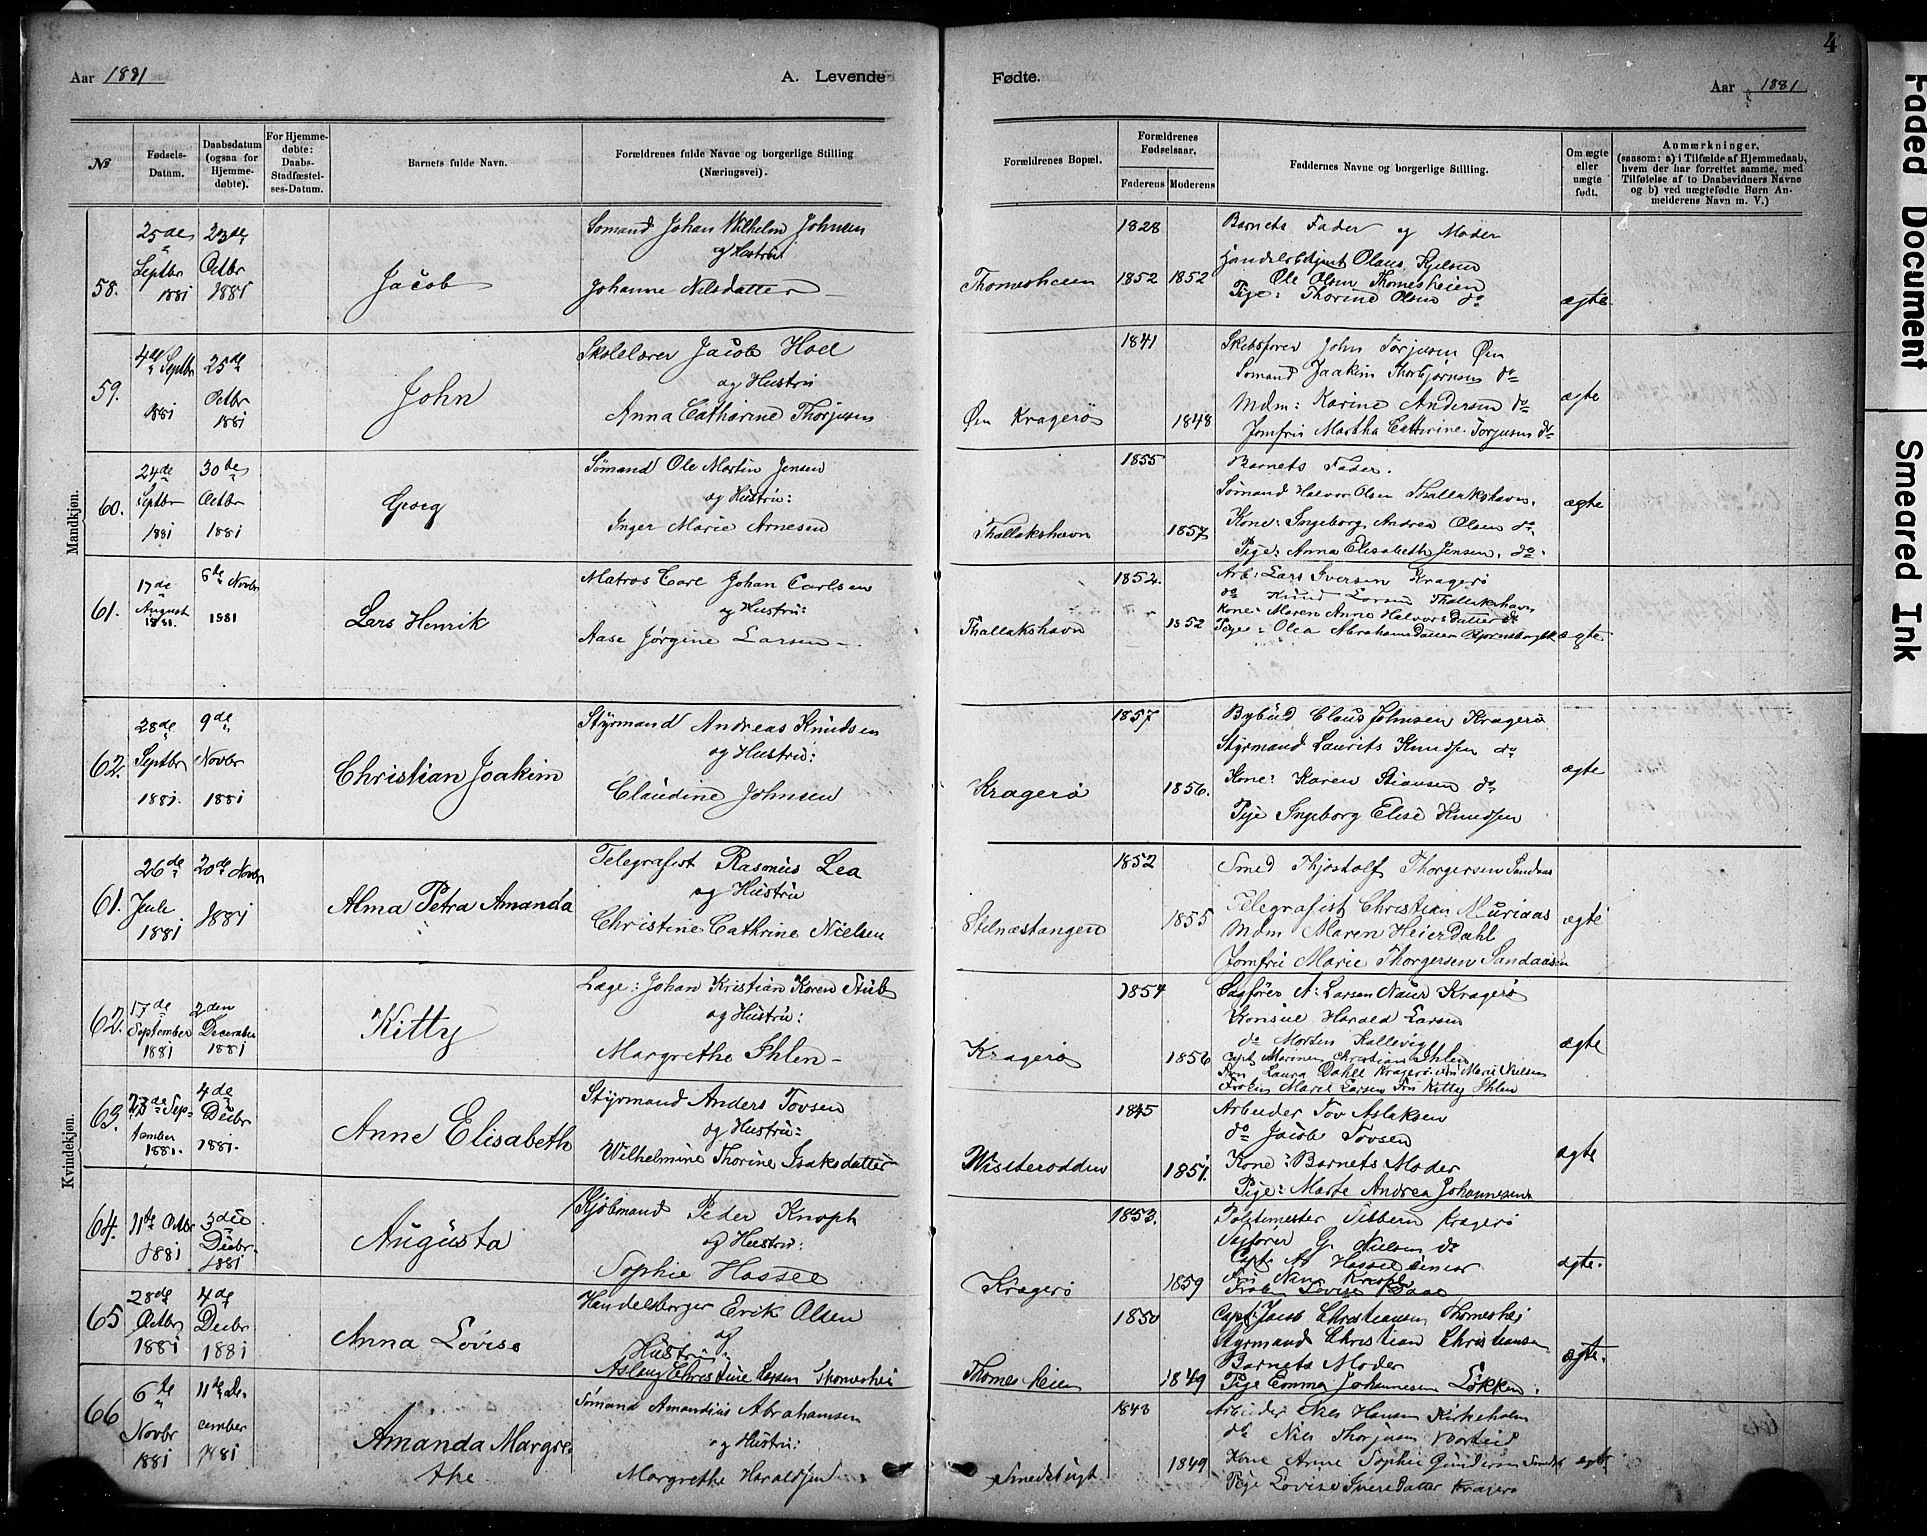 Aar 1881
A. Levende
Fødte.
Aar 1881
4
№
Fødsels-Datum.
Daabsdatum (ogsaa for Hjemmedøbte).
For Hjemmedøbte: Daabs-Stadfæstelses-Datum.
Barnets fulde Navn.
Forældrenes fulde Navne og borgerlige Stilling (Næringsvei).
Forældrenes Bopæl.
Forældrenes Fødselsaar.
Faderens
Moderens
Faddernes Navne og borgerlige Stilling.
Om ægte eller uægte født.
Anmærkninger.
(saasom: a) i Tilfælde af Hjemmedaab, hvem der har forrettet samme, med Tilføielse af to Daabsvidners Navne og b) ved uægtefødte Børn Anmelderens Navn m. V.)
Mandkjøn.
58.
25de Septbr 1881
23de Octbr 1881
Jacob
Sømand Johan Wilhelm Johnsen
og Hustru
Johanne Nilsdatter
Thomesheien
1828
1852 1852
Barnets Fader og Moder
Olaus Kjelsen
Ole Olsen Thomesheien
Pige: Thorine Olsen do
ægte
59.
4de Septbr 1881
25de Octbr 1881
John
Skolelærer Jacob Hoel
og Hustru
Anna Cathrine Thorjusen
Øen Kragerø
1841
1848
Skibsfører John Torjusen Øen
Sømand Joakim Thorbjørnsen do
Mdm: Karine Andersen do
Jomfru Martha Cathrine Torjusen do
ægte
60.
24de Septbr 1881
30de Octbr 1881
Georg
Sømand Ole Martin Jensen
og Hustru:
Inger Marie Arnesen
Thallakshavn
1855
1857
Barnets Fader.
Sømand Halvor Olsen Thallakshavn.
Kone: Ingeborg Andrea Olsen do.
Pige: Anna Elisabeth Jensen. do.
ægte
61.
17de August 1881.
6te Novbr 1881
Lars Henrik
Matros Carl Johan Carlsen
og Hustru:
Aase Jørgine Larsen
Thallakshavn
1852.
1852
Arb: Lars Iversen Kragerø
do Knud Larsen Thallakshavn
Kone: Maren Anne Halvorsdatter do
Pige: Olea Abrahamsdatter
ægte
62.
28de Septbr 1881.
9de Novbr 1881
Christian Joakim
Styrmand Andreas Knudsen
og Hustru:
Claudine Johnsen
Kragerø
1857
1856.
Bybud Claus Johnsen Kragerø
Styrmand Laurits Knudsen do
Kone: Karen Stiansen do
Pige Ingeborg Elise Knudsen
ægte
Kvindekjøn.
61.
26de Juli 1881
20de Novbr 1881
Alma Petra Amanda
Telegrafist Rasmus Lea
og Hustru
Christine Cathrine Nielsen
Stilnæstangen
1852
1855
Smed Thjostolf Thorgersen Sandaas
Telegrafist Christian Muriaas
Mdm Maren Heierdahl
Jomfru Marie Thorgersen Sandaasen
ægte
62.
17de September 1881
2den December 1881
Kitty
Læge: Johan Kristian Koren Stub
og Hustru:
Margrethe Ihlen
Kragerø
1854
1856
Sagfører N: Larsen Naur Kragerø
Konsul Harald Larsen
do Morten Kallevig
Capt Christian Ihlen
Fru Laura Dahll Kragerø Marie Nielsen
Frøken Marie Larsen Fru Kitty Ihlen
ægte
63.
September 1881.
4de Decbr 1881.
Anne Elisabeth
Styrmand Anders Tovsen
og Hustru:
Wilhelmine Thorine Isaksdatter
Wisiterodden
1845
1851.
Arbeider Tov Aslaksen
do Jacob Tovsen
Kone: Barnets Moder
Pige: Marte Andrea Johannesen
ægte
64.
11te Octbr 1881
3die Decbr. 1881
Augusta
Kjøbmand Peder Knoph
og Hustru:
Sophie Hassel
Kragerø
1853.
1859
Politimester Sibbern Kragerø
Sagfører G. Nielsen do
Capt. A. Hassel senior
Fru Nana Knoph
Frøken Lovise Baae
ægte.
65
28de Octbr 1881
4de Decbr 1881
Anna Lovise
Handelsborger Erik Olsen
og
Hustru:
Aslaug Christine Larsen Thomeshei
Thomesheien
1850
1849
Capt: Jacob Christiansen Thomeshei
Styrmand Christian Christiansen
Barnets Moder
Pige Emma Johannesen Løkken.
ægte.
66
6te Novbr 1881
11te December 1881
Amanda Margrethe
Sømand Amandius Abrahamsen
og Hustru:
Margrethe Haraldsen
Smedsbugt
1843
1849
Arbeider Nils Hansen Kirkeholm
do Nils Thorjusen
Kone Anne Sophie Gundersen
Pige Lovise Iversdatter Kragerø
ægte
Faded Document
Smeared Ink